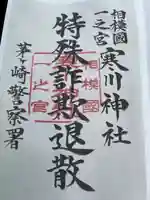 相模國
一之宮
寒川神社
特殊詐欺退散
茅ヶ崎警察署
相模國
一之宮